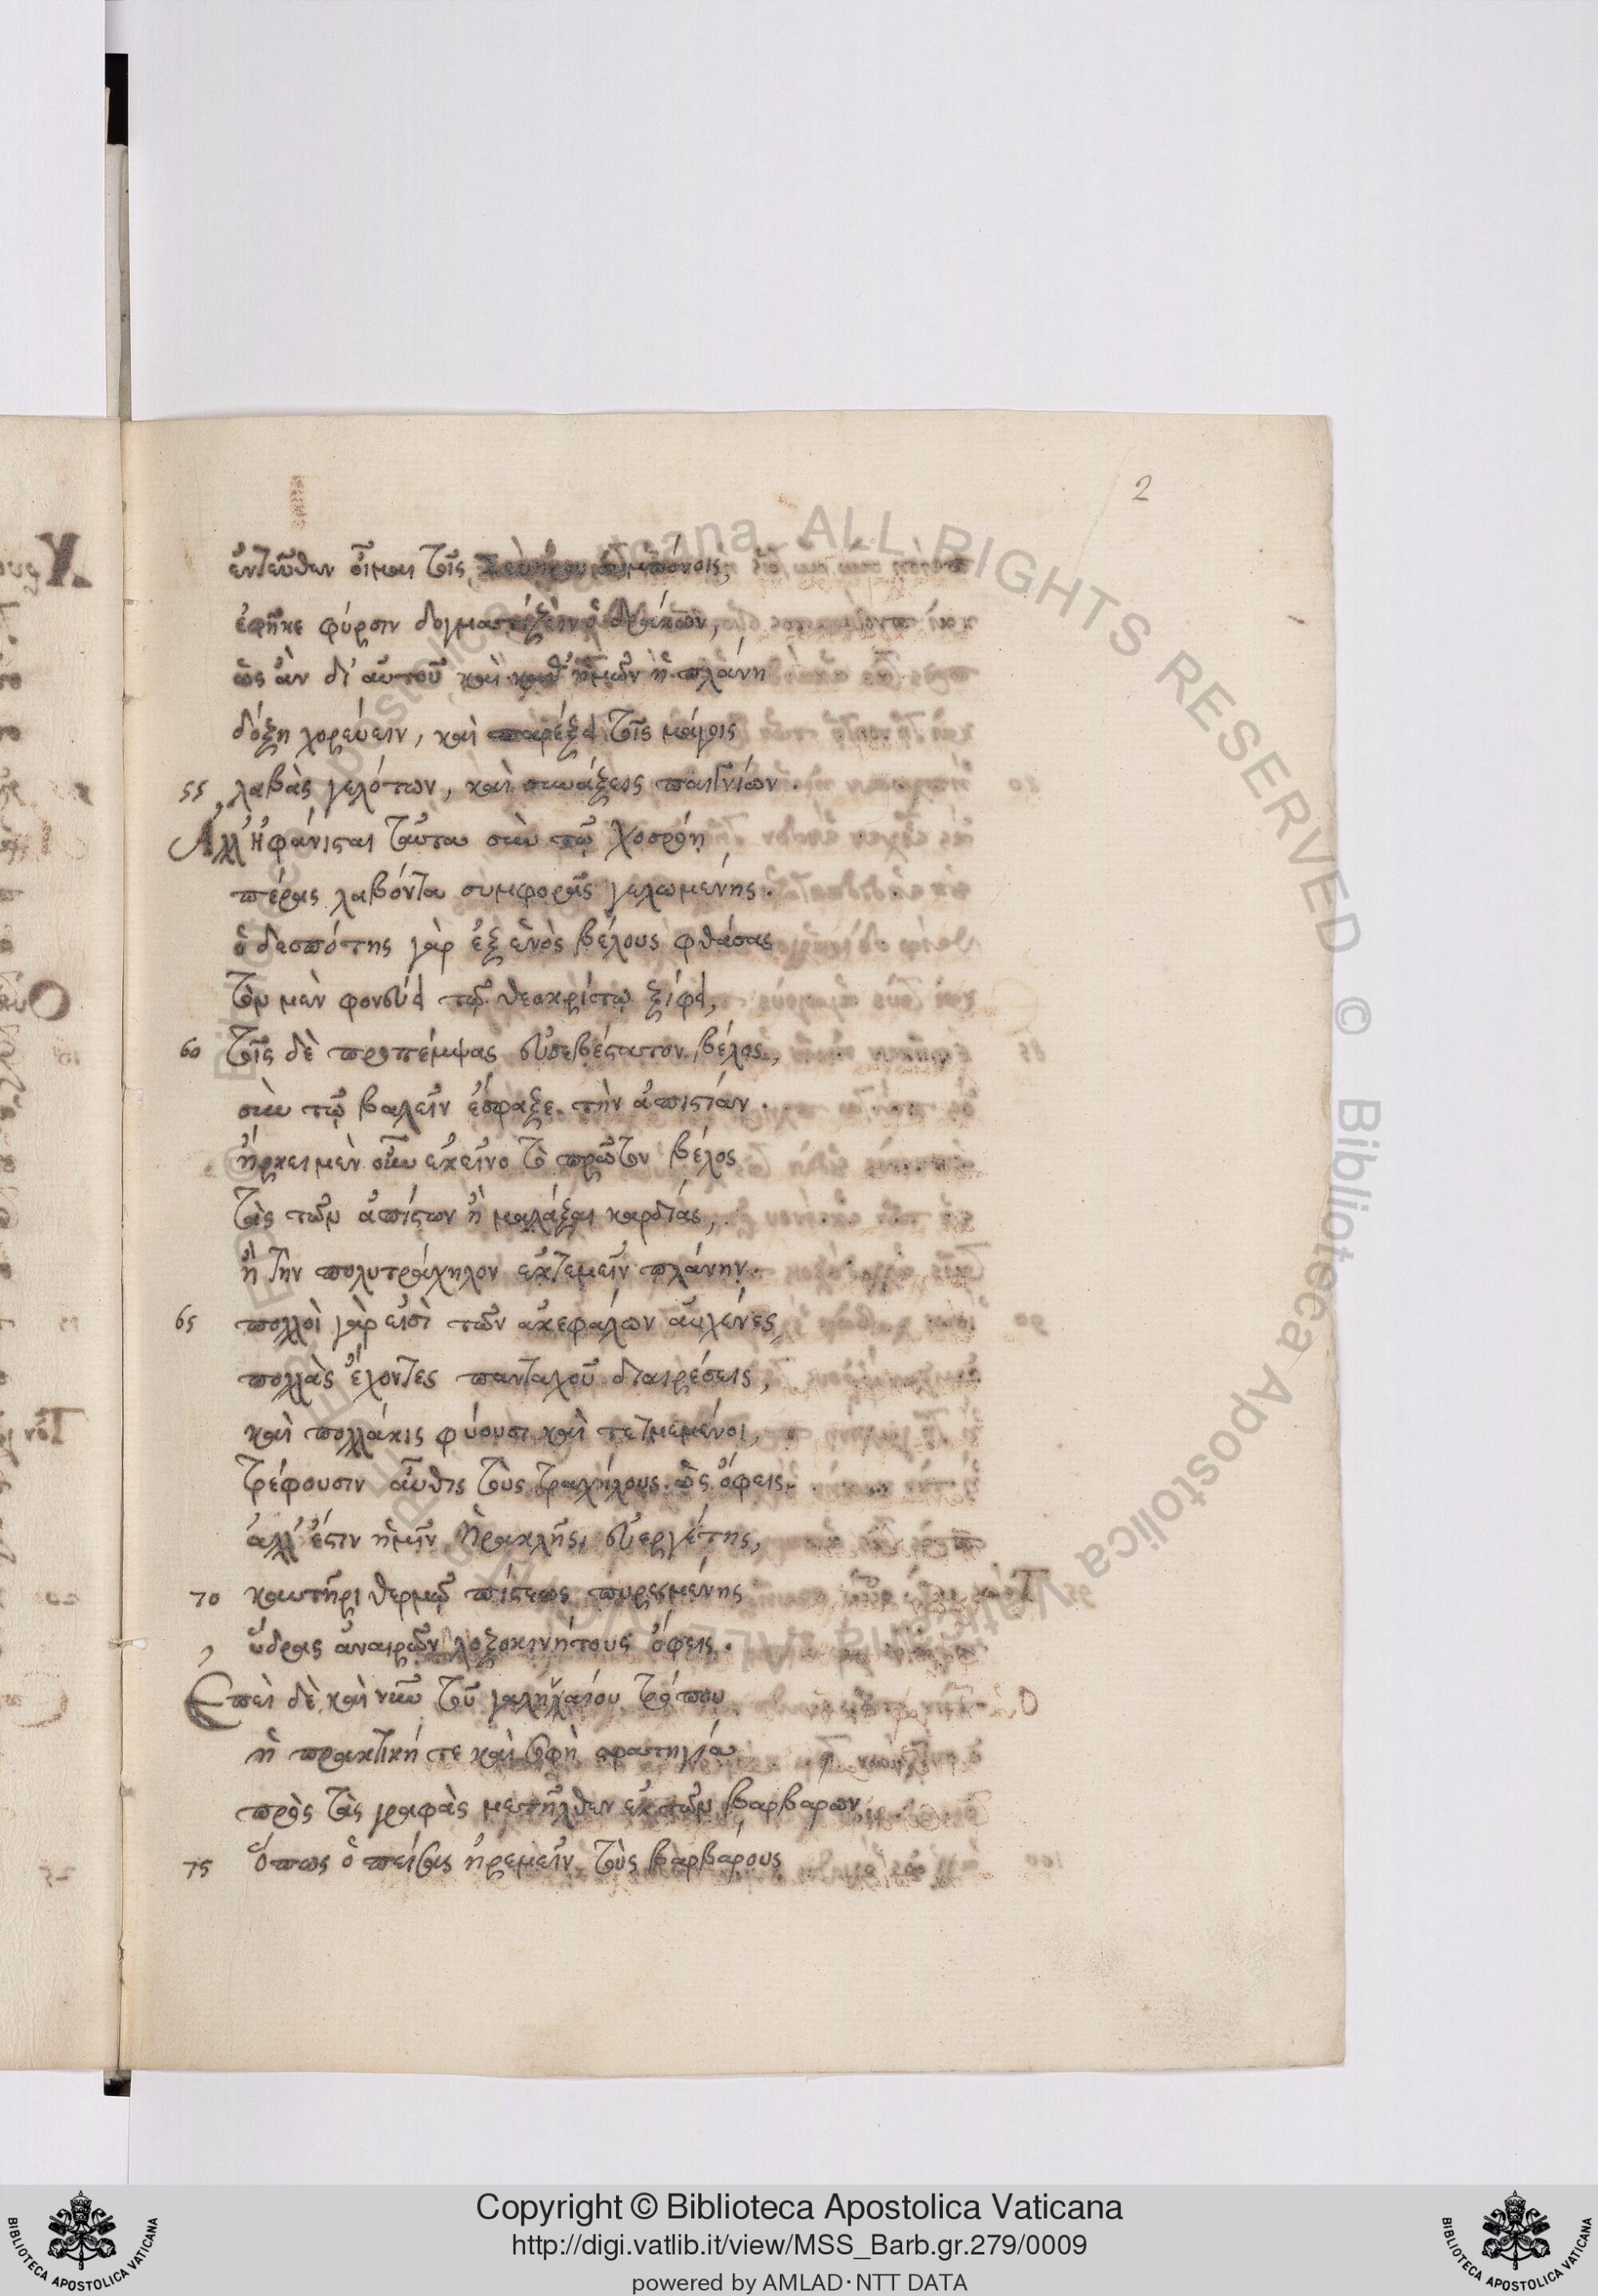 2
ἐντεῦθεν οἶμαι τοῖς Σευήρου συμπόνοις,
ἐφῆκε φύρσιν δογμα ὁ δράκων,
ὡς ἂν δι᾽ αὐτοῦ καὶ καθ᾽ ἡμῶν ἡ πλάνη
δόξῃ χορεύειν, καὶ παρέξει τοῖς μάγοις
55 λαβὰς γελότων, καὶ συνάξεις παιγνίων.
Ἀλλ᾽ ἠφάνισται ταῦτα σὺν τῷ Χοσρόῃ
πέρας λαβόντα συμφορᾶς γελωμένης.
ὁ δεσπότης γὰρ ἐξ ἑνὸς βέλους φθάσας
τὸν μὲν φονεύει τῷ θεοκρίτῳ ξίφει,
60 τοῖς δὲ προπέμψας εὐσεβέστατον βέλος,
σὺν τῷ βαλεῖν ἔσφαξε τὴν ἀπιστίαν.
ἤρκει μὲν οὖν ἐκεῖνο τὸ πρῶτον βέλος
τὰς τῶν ἀπίστων ἢ μαλάξαι καρδίας,
ἢ τὴν πολυτράχηλον ἐκτεμεῖν πλάνην.
65 πολλοὶ γάρ εἰσὶ τῶν ἀκεφάλων αὐχένες,
πολλὰς ἔχοντες πανταχοῦ διαιρέσεις,
καὶ πολλάκις φύουσι καὶ τετμημένοι,
τρέφουσιν αὖθις τοὺς τραχήλους ὡς ὄφεις.
ἀλλ᾽ ἔστιν ἡμῖν Ἡρακλῆς εὐεργέτης,
70 καυτῆρι θερμῷ πίστεως πυρουμένης
ὕδρας ἀναιρῶν λοξοκινήτους ὄφεις.
Ἐπεὶ δὲ καὶ νῦν τοῦ γαληναίου τρόπου
ἡ πρακτική τε καὶ σοφὴ στρατηγία
πρὸς τὰς γραφὰς μετῆλθεν ἐκ τῶν βαρβάρων,
75 Ὅπως ὁ πείσας ἠρεμεῖν τοὺς βαρβάρους
Copyright © Biblioteca Apostolica Vaticana
http://digi.vatlib.it/view/MSS_Barb.gr.279/0009
powered by AMLAD·NTT DATA